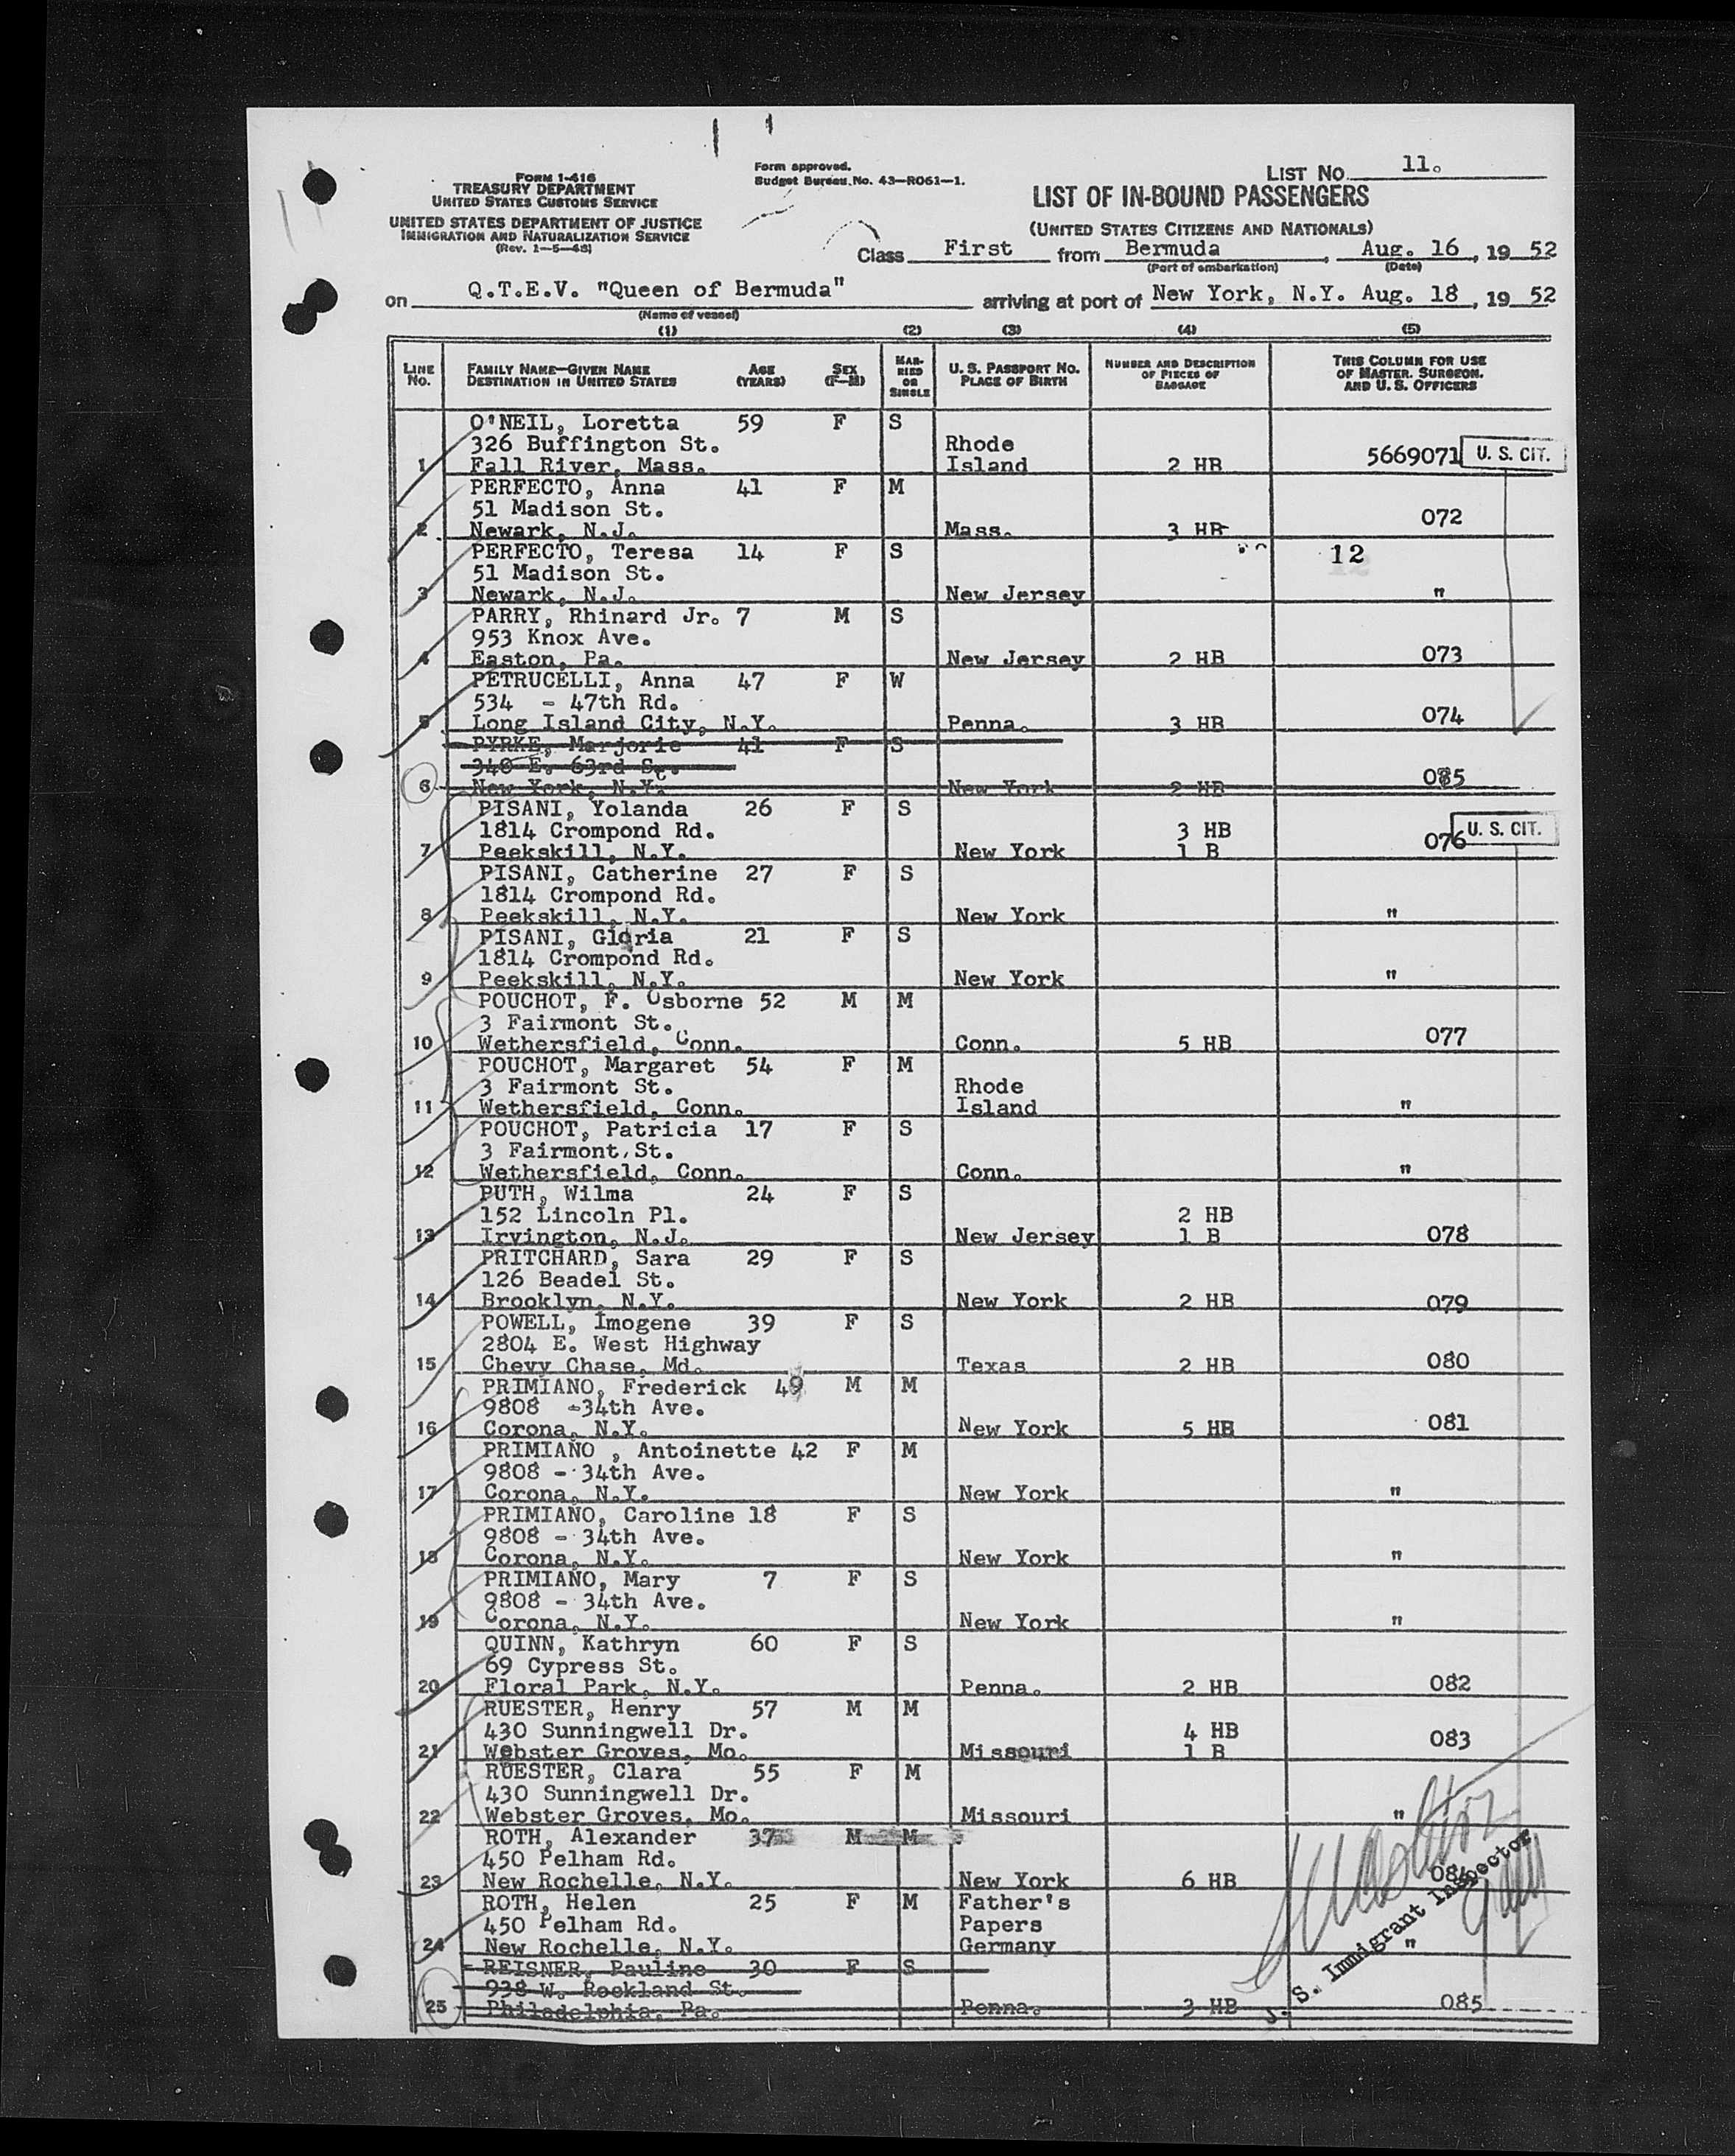 FORM I-416
TREASURY DEPARTMENT
UNITED STATES CUSTOMS SERVICE
UNITED STATES DEPARTMENT OF JUSTICE
IMMIGRATION AND NATURALIZATION SERVICE
(Rev. 1-5-48)
Form approved.
Budget Bureau No. 43-R061-1.
LIST No. 11.
LIST OF IN-BOUND PASSENGERS
(UNITED STATES CITIZENS AND NATIONALS)
Class First from Bermuda, Aug. 16, 19 52
(Port of embarkation) (Date)
on Q.T.E.V. "Queen of Bermuda" arriving at port of New York, N.Y. Aug. 18, 19 52
(Name of vessel)
(1) (2) (3) (4) (5)
LINE No. FAMILY NAME—GIVEN NAME DESTINATION IN UNITED STATES AGE (YEARS) SEX (F-M) MARRIED OR SINGLE U. S. PASSPORT NO. PLACE OF BIRTH NUMBER AND DESCRIPTION OF PIECES OF BAGGAGE THIS COLUMN FOR USE OF MASTER. SURGEON. AND U. S. OFFICERS
O'NEIL, Loretta 59 F S
326 Buffington St. Rhode
1 Fall River, Mass. Island 2 HB 5669071 U. S. CIT.
PERFECTO, Anna 41 F M
51 Madison St. 072
2 Newark, N.J. Mass. 3 HB
PERFECTO, Teresa 14 F S 12
51 Madison St.
3 Newark, N.J. New Jersey "
PARRY, Rhinard Jr. 7 M S
953 Knox Ave.
4 Easton, Pa. New Jersey 2 HB 073
PETRUCELLI, Anna 47 F W
534 - 47th Rd.
5 Long Island City, N.Y. Penna. 3 HB 074
PYRKE, Marjorie 41 F S
340 E. 63rd St.
6 New York, N.Y. New York 2 HB 085
PISANI, Yolanda 26 F S
1814 Crompond Rd. 3 HB U. S. CIT.
7 Peekskill, N.Y. New York 1 B 076
PISANI, Catherine 27 F S
1814 Crompond Rd.
8 Peekskill, N.Y. New York "
PISANI, Gloria 21 F S
1814 Crompond Rd.
9 Peekskill, N.Y. New York "
POUCHOT, F. Osborne 52 M M
3 Fairmont St.
10 Wethersfield, Conn. Conn. 5 HB 077
POUCHOT, Margaret 54 F M
3 Fairmont St. Rhode
11 Wethersfield, Conn. Island "
POUCHOT, Patricia 17 F S
3 Fairmont St.
12 Wethersfield, Conn. Conn. "
PUTH, Wilma 24 F S
152 Lincoln Pl. 2 HB
13 Irvington, N.J. New Jersey 1 B 078
PRITCHARD, Sara 29 F S
126 Beadel St.
14 Brooklyn, N.Y. New York 2 HB 079
POWELL, Imogene 39 F S
2804 E. West Highway
15 Chevy Chase, Md. Texas 2 HB 080
PRIMIANO, Frederick 49 M M
9808 -34th Ave.
16 Corona, N.Y. New York 5 HB 081
PRIMIANO , Antoinette 42 F M
9808 - 34th Ave.
17 Corona, N.Y. New York "
PRIMIANO, Caroline 18 F S
9808 - 34th Ave.
18 Corona, N.Y. New York "
PRIMIANO, Mary 7 F S
9808 - 34th Ave.
19 Corona, N.Y. New York "
QUINN, Kathryn 60 F S
69 Cypress St.
20 Floral Park, N.Y. Penna. 2 HB 082
RUESTER, Henry 57 M M
430 Sunningwell Dr. 4 HB
21 Webster Groves, Mo. Missouri 1 B 083
RUESTER, Clara 55 F M
430 Sunningwell Dr.
22 Webster Groves, Mo. Missouri "
ROTH, Alexander 37 M M
450 Pelham Rd.
23 New Rochelle, N.Y. New York 6 HB 084
ROTH, Helen 25 F M Father's
450 Pelham Rd. Papers
24 New Rochelle, N.Y. Germany "
REISNER, Pauline 30 F S
938 W. Rockland St.
25 Philadelphia, Pa. Penna. 3 HB 085
U. S. Immigrant Inspector